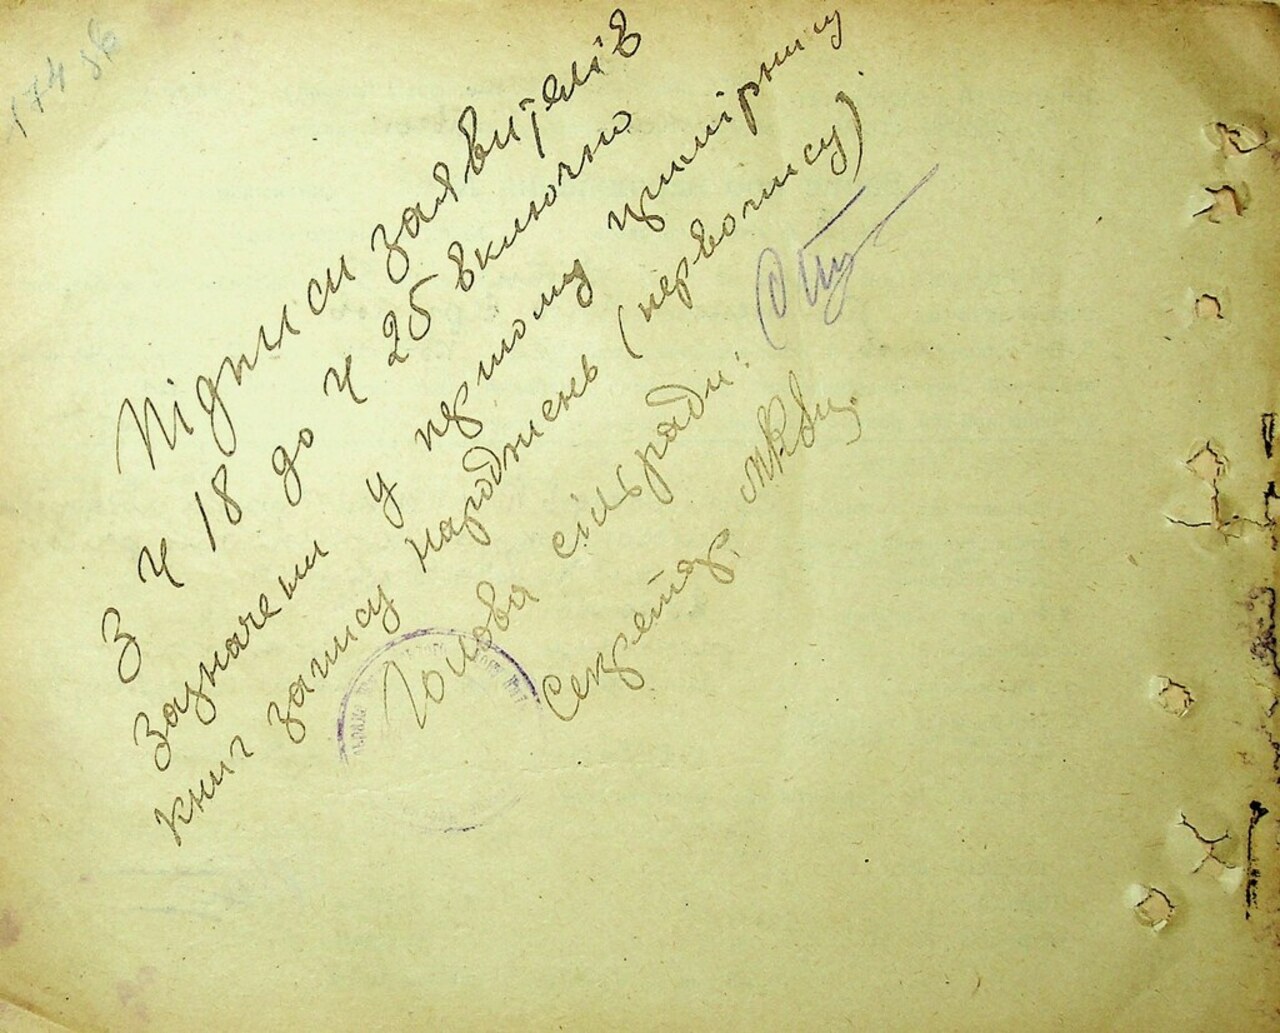 Підписи заявителів
З ч 18 до ч 25 включно
зазначени у першому примірнику
книг запису народжень (первопису)
Голова сільради:
Секретар.